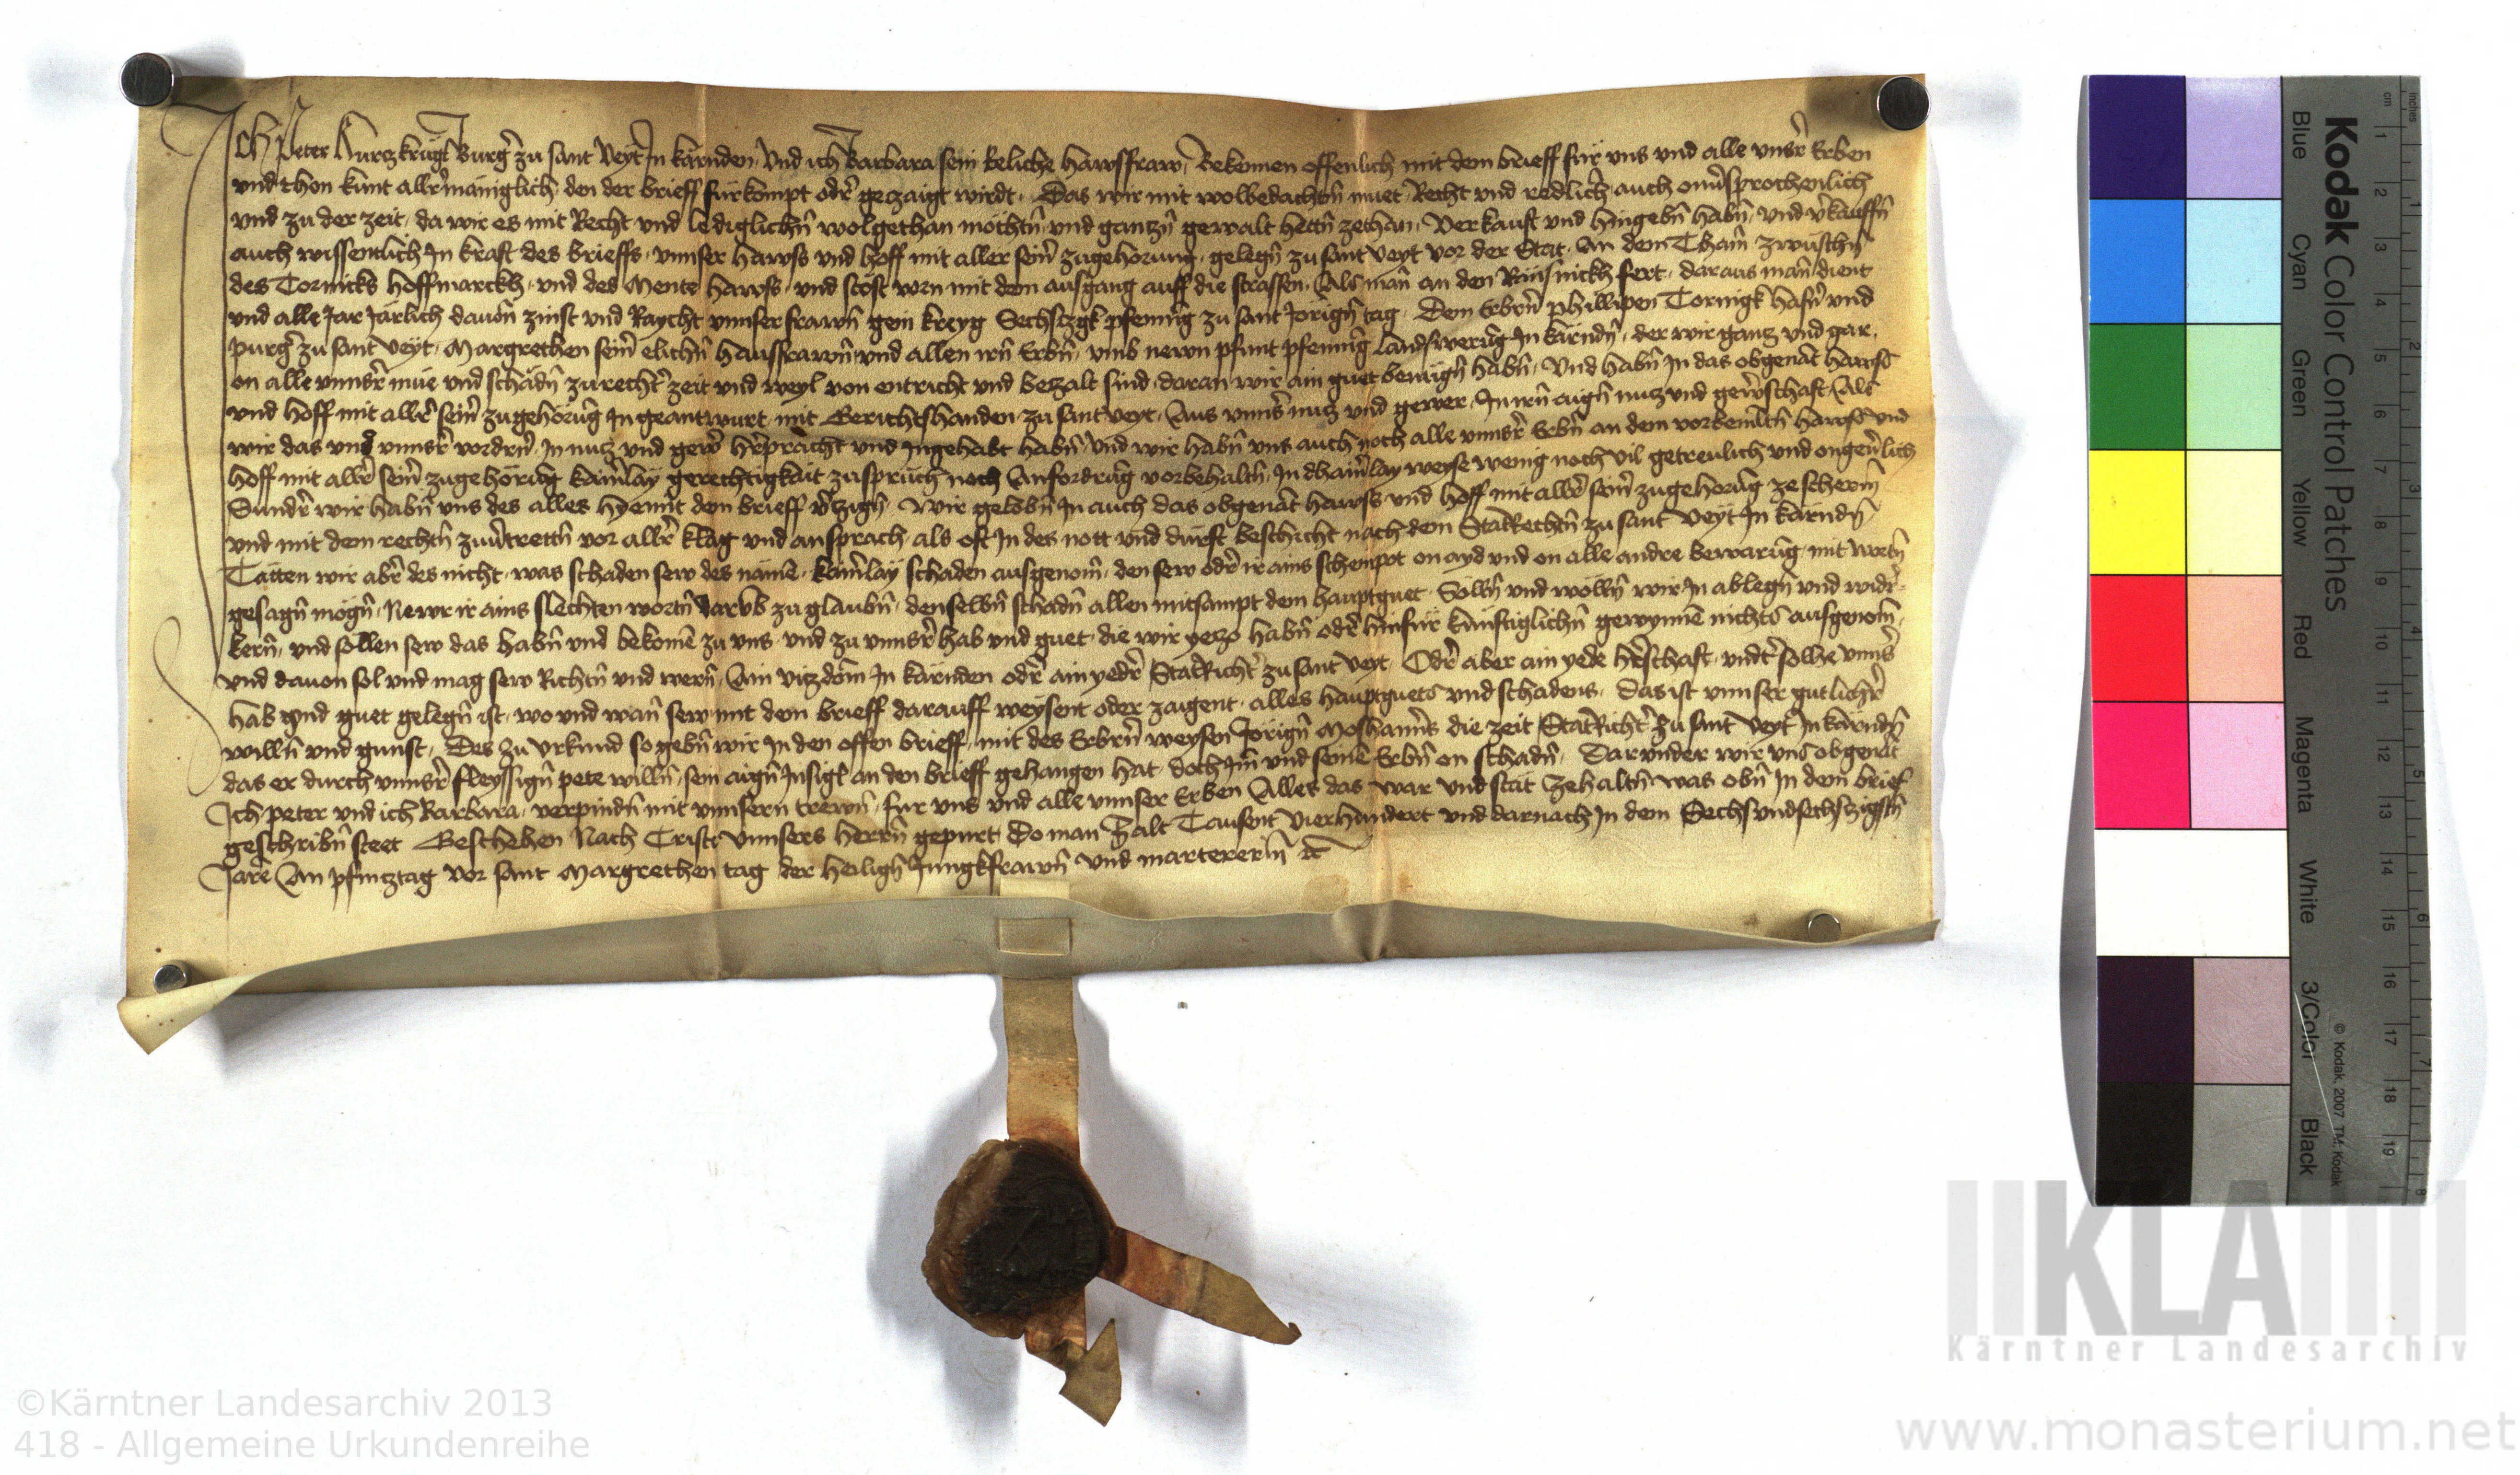 Ich Peter Kurczkrügl Burgr̄ zu sant Veyt In kärnden Und ich Barbara sein Eeliche hawssfraw, Bekennen offenlich mit dem brieff für vns vnd alle vnsr̄ Erben
vnd thon kunt allr̄mäniglich den der brieff fürkompt odr̄ geczaigt wirdt. Das wir mit wolbedachtn̄ muet Recht vnd redlich auch onūsprochenlich
vnd zu der zeit, da wir es mit Recht vnd lediglichn̄ wolgethan mochtn̄ vnd ganczn̄ gewalt hettn̄ zethan, Verkauft vnd hingebn̄ habn̄, vnd v̄kauffn̄
auch wissentlich In kraft des brieffs, vnnser hawss vnd hoff mit aller sein̄ zugehorung, gelegn̄ zu sant veyt vor der Stat, An dem Tham̄ zwüschn̄
des Tornicks hoffmarckh, vnd des Mente hawss, vnd stost vorn mit dem ausgang auff die strassen, Als man̄ an den fert, daraus man̄ dient
vnd alle Jar Järlich dauon̄ zinst vnd Raycht vnnser frawn̄ gein kreyg Sechstzgk pfeninḡ zu sant Jörign̄ tag, Dem Erbrn̄ phillipen Tornigk hafn̄ vnd
purgr̄ zu sant veyt, Margrethen sein̄ elichn̄ hausfrawn̄ vnd allen irn̄ Erbn̄, vmb newn pfunt pfeninḡ landswerūg In kärndn̄, der wir gancz vnd gar,
on alle vnnsr̄ müe vnd schädn̄ zu rechtr̄ zeit vnd weyl von entricht vnd beczalt sind, daran wir ain guet benügn̄ habn̄, Und habn̄ In das obgenāt hawss
vnd hoff mit allr̄ sein̄ zugehörūg In geantwurt mit Gerichtshanden zu sant veyt, Aus vnnsr̄ nucz vnd gewer, In irn̄ aign̄ nucz vnd gew̄rschaft, Als
wir das vnd vnnsr̄ vordrn̄, In nucz vnd gewr̄ hr̄pracht vnd Ingehabt habn̄ Und wir habn̄ vns auch noch alle vnnsr̄ Erbn̄ an dem vorbemeltn̄ hawss vnd
hoff mit allr̄ sein̄ zugehörūg kain̄lay gerechtigkait zuspruch noch Anfordrūg vorbehaltn̄, In dhain̄lay weyse wenig noch vil getreulich vnd ongeūlich
Sundr̄ wir habn̄ vns des alles hyemit dem brieff v̄czign̄. Wir gelobn̄ In auch das obgenāt hawss vnd hoff mit allr̄ sein̄ zugehorūg ze scherm̄
vnd mit dem rechtn̄ zuūtrettn̄ vor allr̄ klag vnd ansprach, als oft In des nott vnd durft beschicht nach dem StatRechtn̄ zu sant Veyt In kärndn̄
Tätten wir abr̄ des nicht, was schaden sew des näme, kain̄lay schaden ausgenom̄, den sew odr̄ ir ains on ayd vnd on alle andre bewarūg, mit wortn̄
gesagn̄ mögn̄, Newr ir ains slechten wortn̄ darūb zu glaubn̄, denselbn̄ schadn̄ allen mitsampt dem hauptguet, Sölln̄ vnd wölln̄ wir In ablegn̄ vnd widr̄-
kern̄, vnd sollen sew das habn̄ vnd bekome zu vns, vnd zu vnnsr̄ hab vnd guet, die wir yeczo habn̄ odr̄ hinfür künftiglichn̄ gewynne nichts ausgenom̄,
vnd dauon sol vnd mag sew Richtn̄ vnd wern̄, Ain viczdom̄ In kärnden odr̄ ain yedr̄ StatRichtr̄ zu sant veyt, Odr̄ aber ain yede hr̄schaft, vndtr̄ solhe vnnsr̄
hab vnd guet gelegn̄ ist, wo vnd wan̄ sew mit dem brieff darauff weysent oder zaigent, alles hauptguets vnd schadens, Das ist vnnser gutlichr̄
willn̄ vnd gunst, Des zu vrkund so gebn̄ wir In den offen brieff, mit des Erbrn̄ weysen Jörign̄ Moshaim̄s die zeit StatRichtr̄ zu sant Veyt In kärndn̄
das er durch vnnsr̄ fleyssign̄ pete willn̄, sein aign̄ Insigl an den brieff gehangen hat, doch Im̄ vnd seine Erbn̄ on schadn̄, Darunder wir vns obgenāt
Ich peter vnd ich Barbara, verpindn̄ mit vnnsern trewn̄, fur vns vnd alle vnnser Erben Alles das war vnd stat zehaltn̄ was obn̄ In dem brief
geschribn̄ steet Geschehen Nach Cristi vnnsers herrn̄ gepurt Do man Czalt Tausent vierhundert vnd darnach In dem Sechsvndsechsczigstn̄
Jare An pfincztag vor sant Margrethen tag der heilign̄ Jungkfrawn̄ vnd martererin̄ ꝛc
Kodak Color Control Patches
Blue Cyan Green Yellow Red Magenta White 3/Color Black
© Kodak, 2007 TM: Kodak
cm 1 2 3 4 5 6 7 8 9 10 11 12 13 14 15 16 17 18 19
inches 1 2 3 4 5 6 7 8
KLA
Kärntner Landesarchiv
©Kärntner Landesarchiv 2013
418 - Allgemeine Urkundenreihe
www.monasterium.net